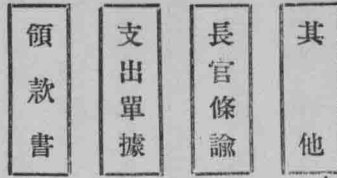 其他
長官條諭
支出單據
領款書